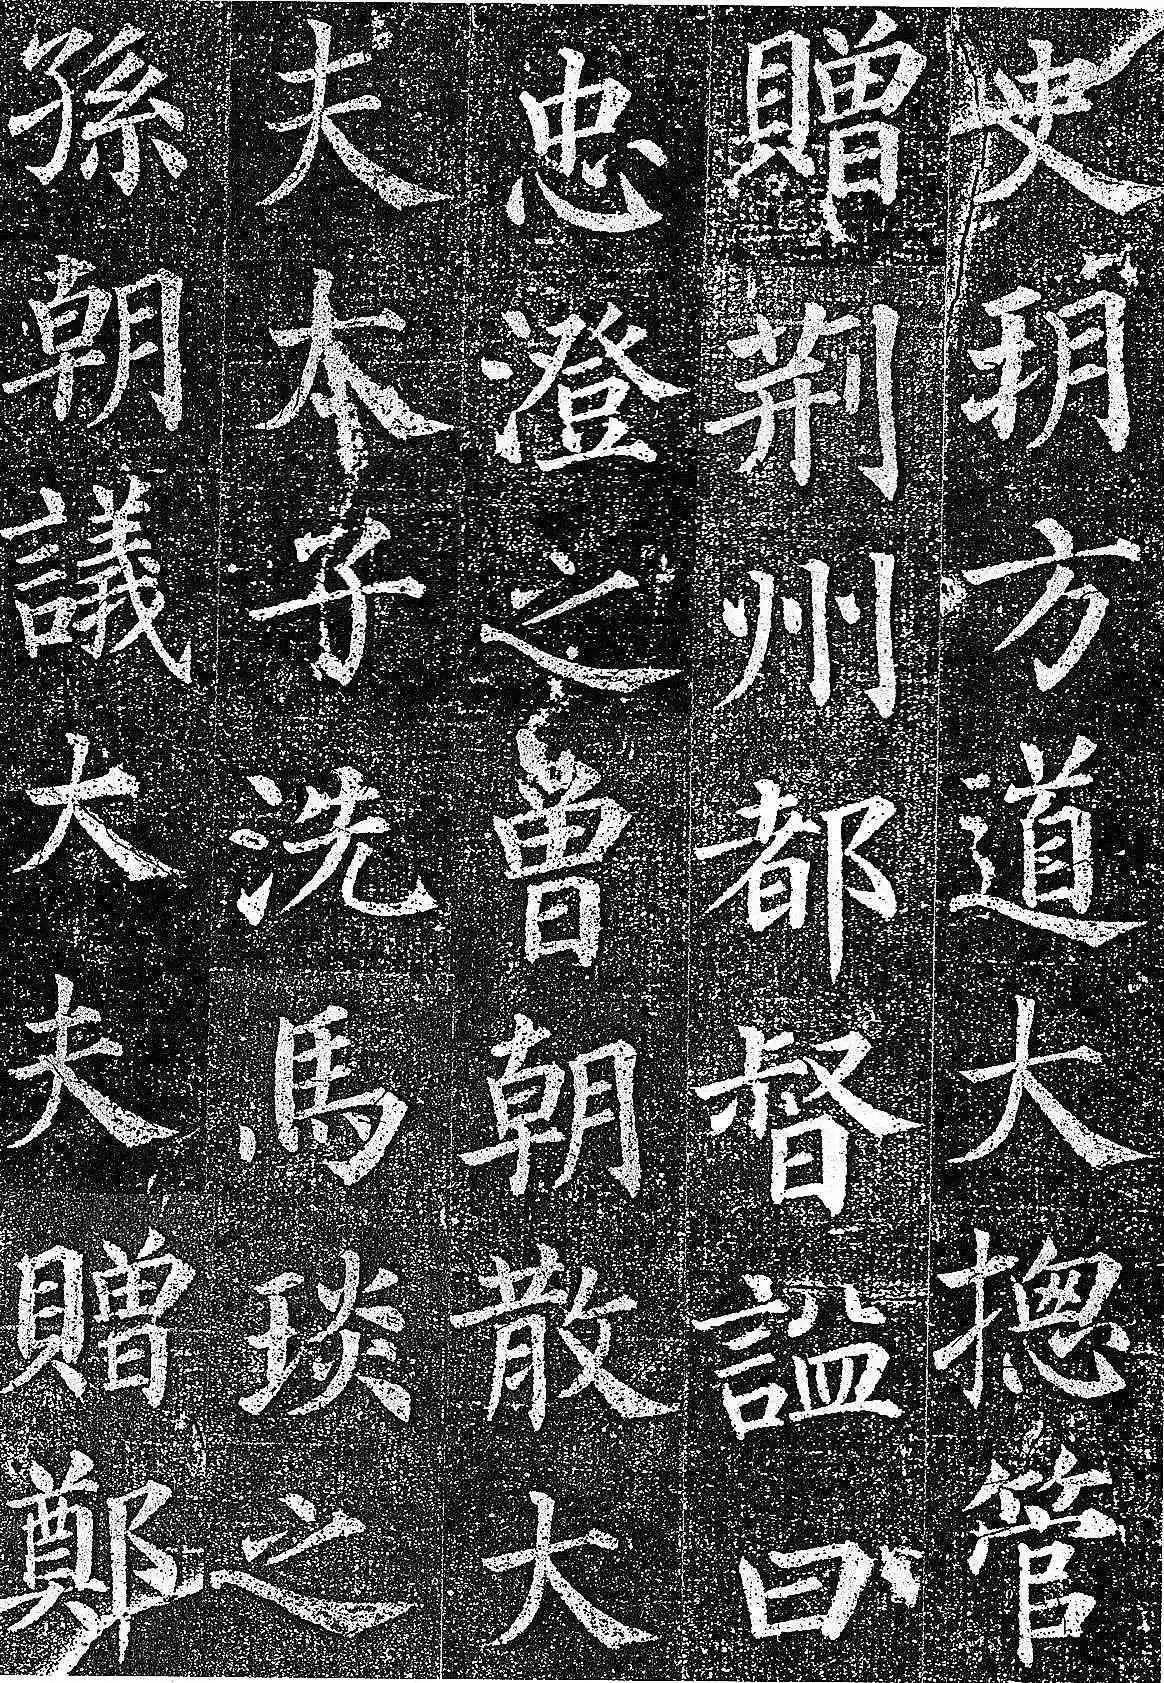 史玥方道大揔管
贈荆州都督謚曰
忠澄之曽朝散大
夫本子洗馬琰之
孫朝議大夫贈鄭